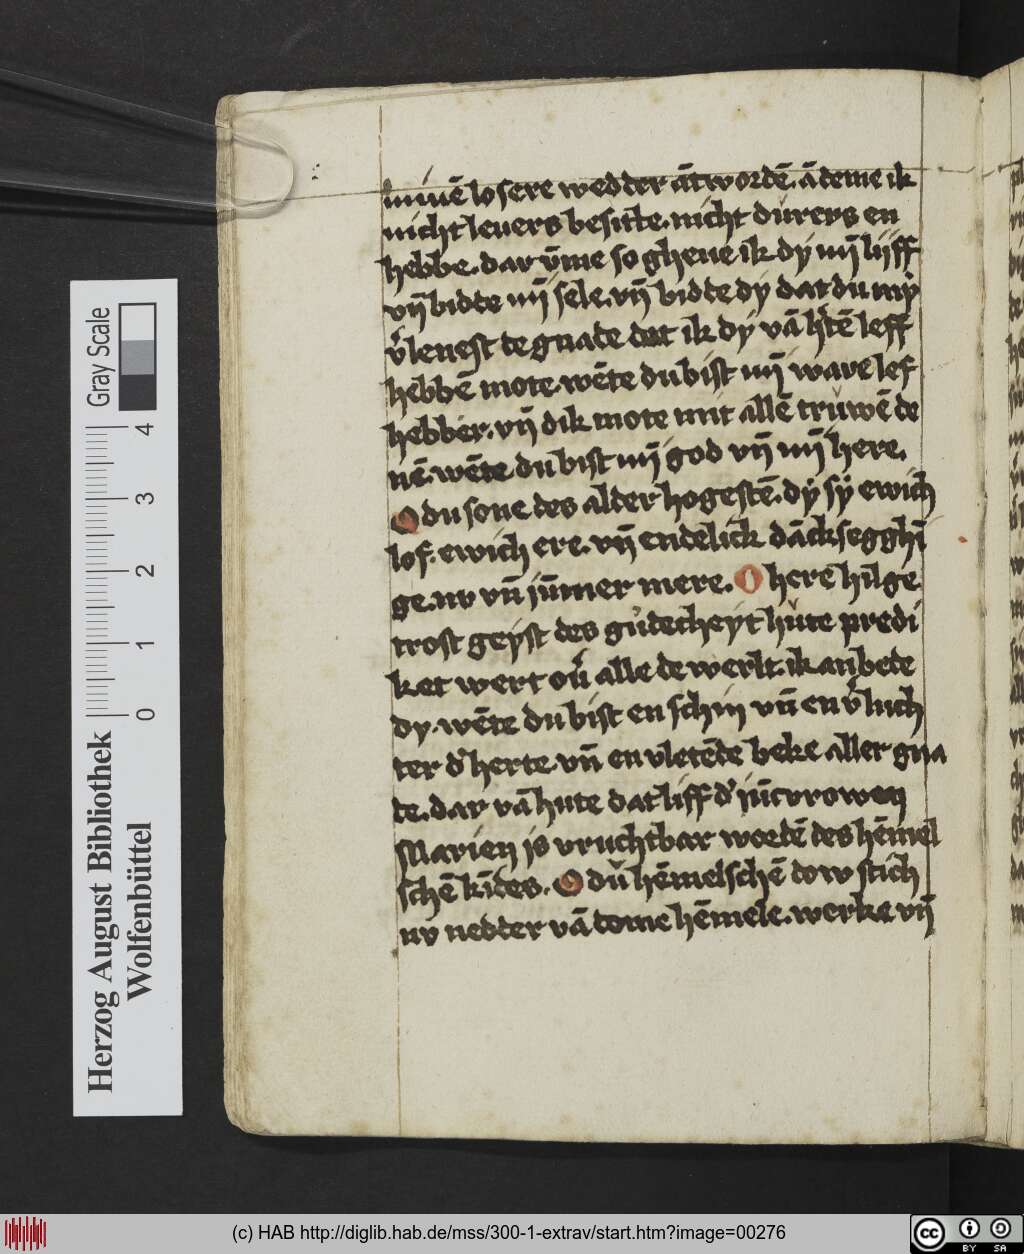 minē losere wedder ātwordē. ādeme ik
nicht leuers besitte. nicht dureys en
hebbe. dar v̄me so gheue ik dy mȳ lijff
vn̄ bidde mȳ sele. vn̄ bidde dy dat du my
v̓lenest de gnade dat ik dy vā h̓tē leff
hebbē mote. wēte du bist mȳ ware lef
hebber. vn̄ dik mote mit allē truwē de
nē. wēte du bist mȳ god vn̄ mȳ here.
O du sone des alder hogestē. dy sy ewich
lof. ewich ere. vn̄ endelick dācksegghī
ge. nv vn̄ jūmer mere. O here hilge
trost geyst des gudecheyt hute predi
ket wert ou̓ alle de werlt. ik anbede
dy. wēte du bist en schin vn̄ en v̓luch
ter d̓ herte. vn̄ en vletēde beke aller gna
de. dar vā hute dat liff d̓ jūcvrowen
Marien is vruchtbar wordē des hēmel
schē kīdes. O du hēmelschē dow stich
nv nedder vā deme hēmele. werke vn̄
Gray Scale
0 1 2 3 4
Herzog August Bibliothek
Wolfenbüttel
(c) HAB http://diglib.hab.de/mss/300-1-extrav/start.htm?image=00276
cc BY SA